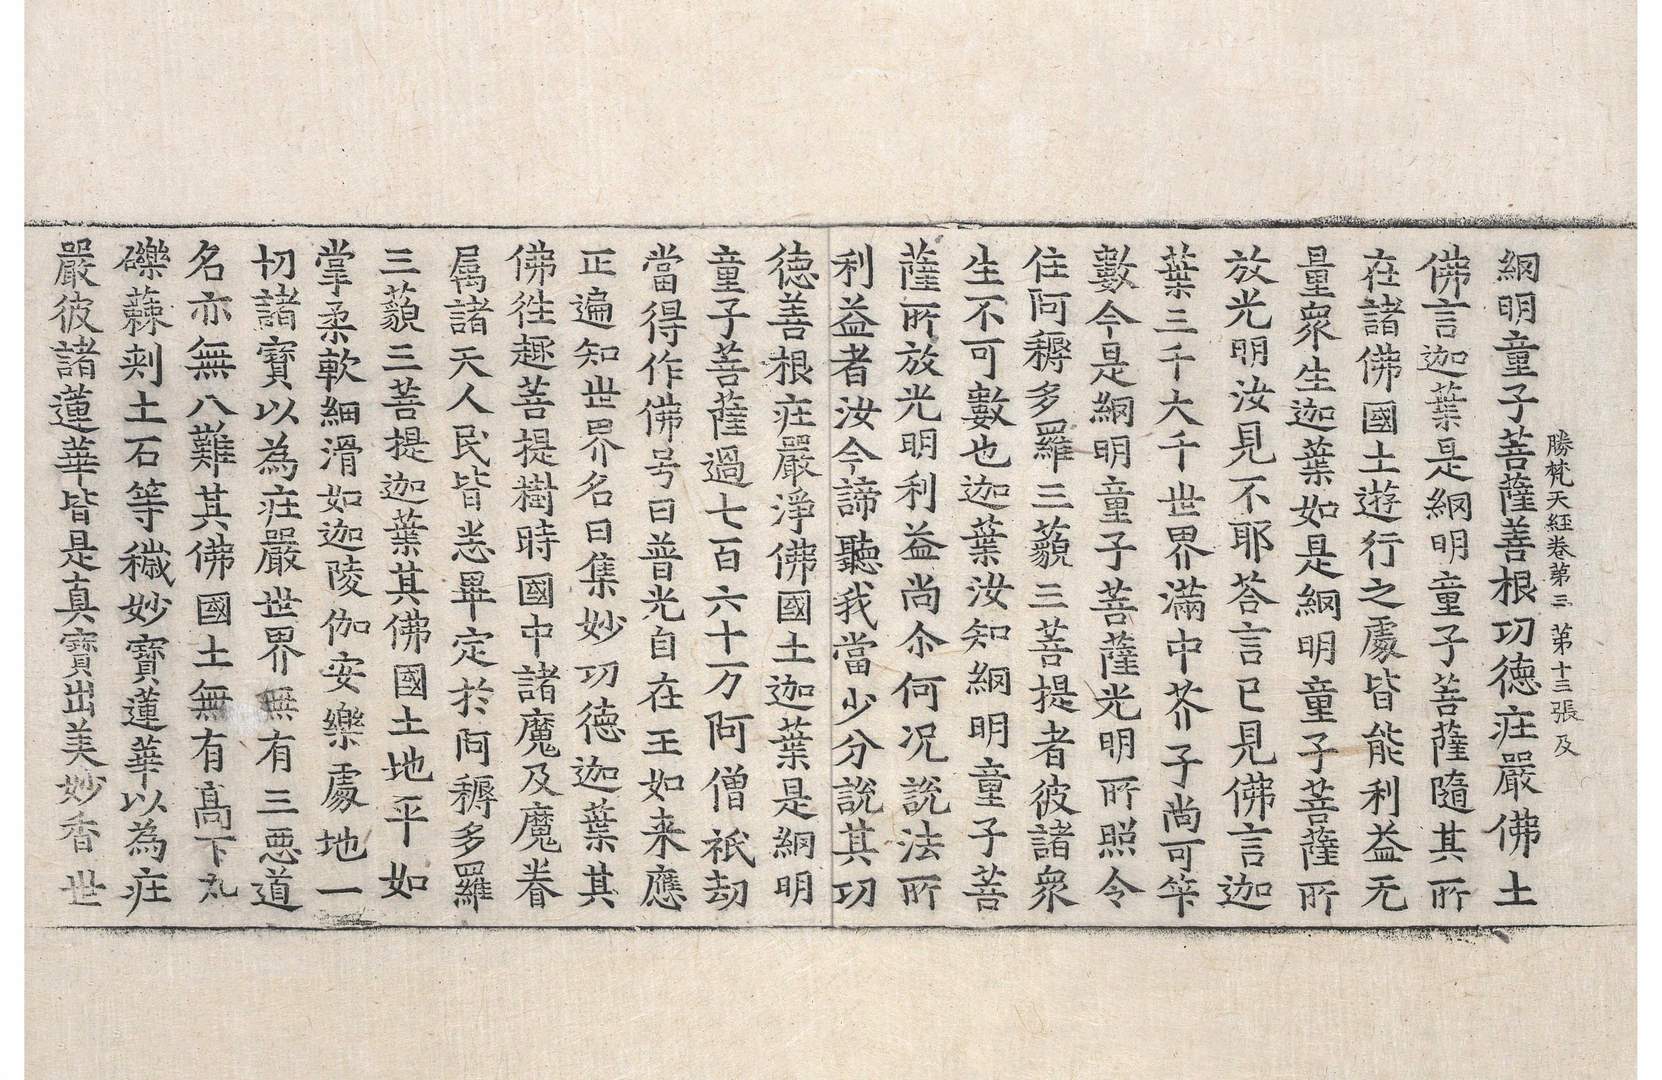 勝梵天經卷第三　第十三張　及
網明童子菩薩善根功德庄嚴佛土
佛言迦葉是網明童子菩薩隨其所
在諸佛國土遊行之處皆能利益无
量衆生迦葉如是網明童子菩薩所
放光明汝見不耶荅言已見佛言迦
葉三千大千世界滿中芥子尚可筭
數今是網明童子菩薩光明所照令
住阿耨多羅三藐三菩提者彼諸衆
生不可數也迦葉汝知網明童子菩
薩所放光明利益尚尒何况說法所
利益者汝今諦聽我當少分說其功
德善根庄嚴淨佛國土迦葉是網明
童子菩薩過七百六十万阿僧祇劫
當得作佛号曰普光自在王如来應
正遍知世界名曰集妙功德迦葉其
佛徃趣菩提樹時國中諸魔及魔眷
属諸天人民皆悉畢定於阿耨多羅
三藐三菩提迦葉其佛國土地平如
掌柔軟細滑如迦陵伽安樂處地一
切諸寶以為庄嚴世界無有三惡道
名亦無八難其佛國土無有高下丸
礫蕀刾土石等穢妙寶蓮華以為庄
嚴彼諸蓮華皆是真寶出美妙香世